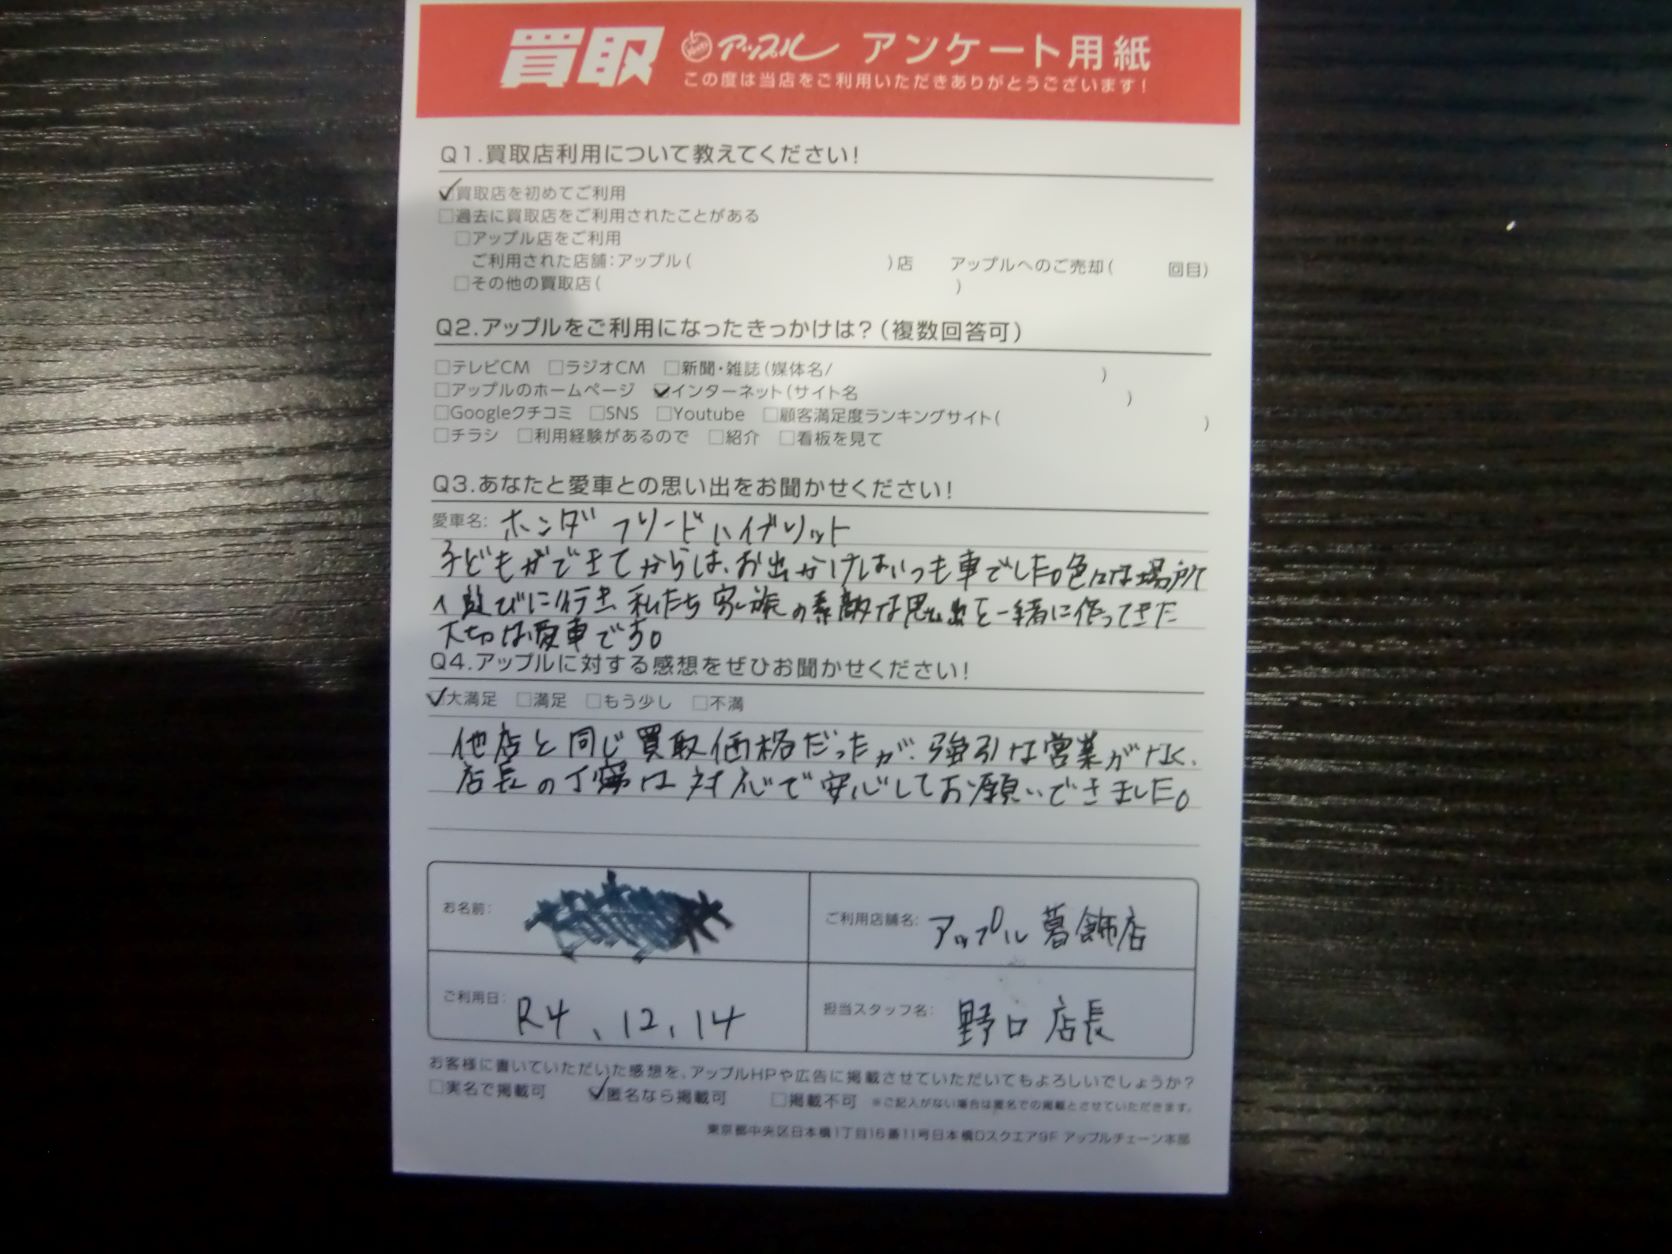 買取 アップル アンケート用紙
この度は当店をご利用いただきありがとうございます!
Q1.買取店利用について教えてください!
買取店を初めてご利用
□過去に買取店をご利用されたことがある
□アップル店をご利用
ご利用された店舗:アップル( )店 アップルへのご売却( 回目)
□その他の買取店( )
Q2.アップルをご利用になったきっかけは?(複数回答可)
□テレビCM □ラジオCM □新聞・雑誌(媒体名/ )
□アップルのホームページ ☑インターネット(サイト名 )
□Googleクチコミ □SNS □Youtube □顧客満足度ランキングサイト( )
□チラシ □利用経験があるので □紹介 □看板を見て
Q3.あなたと愛車との思い出をお聞かせください!
愛車名: ホンダ フリードハイブリット
子どもができてからは、お出かけはいつも車でした。色々な場所
へ遊びに行き、私たち家族の素敵な思い出を一緒に作ってきた
大切な愛車です。
Q4.アップルに対する感想をぜひお聞かせください!
☑大満足 □満足 □もう少し □不満
他店と同じ買取価格だったが、強引な営業がなく、
店長の丁寧な対応で安心してお願いできました。
お名前:
ご利用店舗名: アップル葛飾店
ご利用日: R4、12、14
担当スタッフ名: 野口店長
お客様に書いていただいた感想を、アップルHPや広告に掲載させていただいてもよろしいでしょうか?
□実名で掲載可 ☑匿名なら掲載可 □掲載不可 ※ご記入がない場合は匿名での掲載とさせていただきます。
東京都中央区日本橋1丁目16番11号日本橋Dスクエア9F アップルチェーン本部